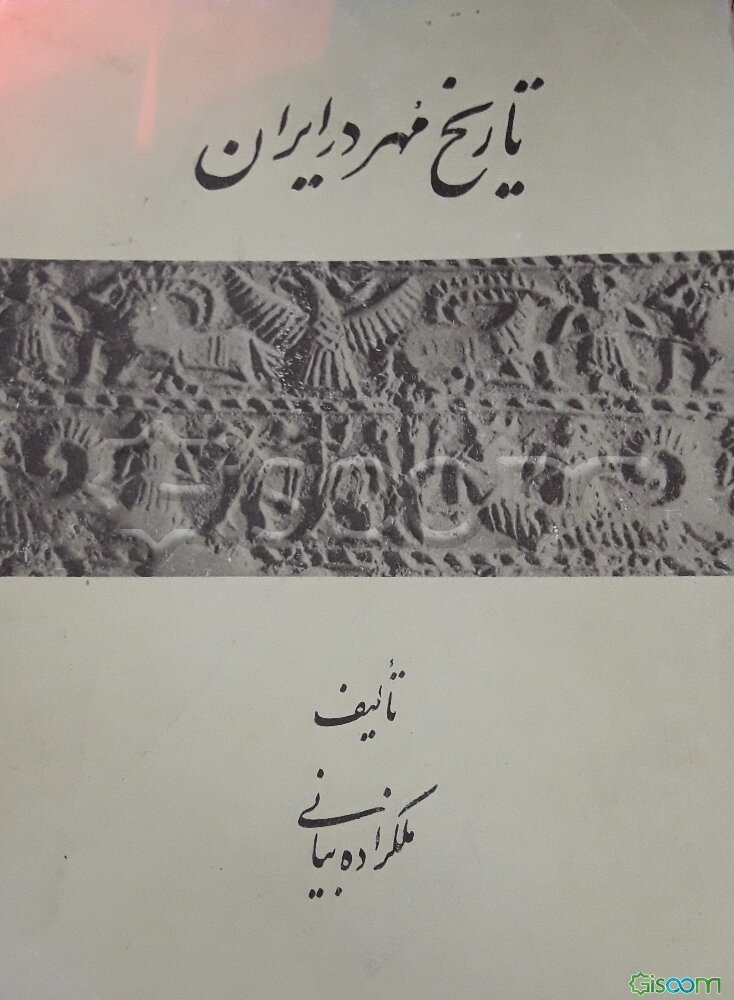 تاریخ مُهر در ایران
Gisoom
تألیف
ملکزاده بیانی
Gisoom